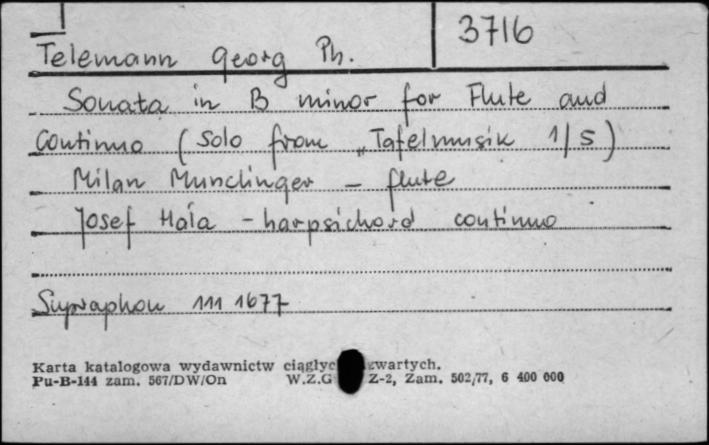 3716
Telemann Georg Ph.
Sonata in B minor for Flute and
Continuo (Solo from „Tafelmusik 1/5)
Milan Munclinger – flute
Josef Hála – harpsichord continuo
Supraphon 111 1677
Karta katalogowa wydawnictw ciągłyc zwartych.
Pu-B-144 zam. 567/DW/On W.Z.G Z-2, Zam. 502/77, 6 400 000